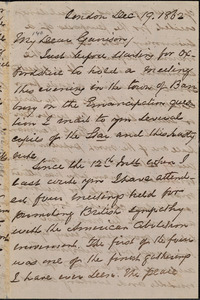 London Dec 19. 1862
My Dear Garrison,
Just before starting for Ox-
fordshire to hold a meeting
this evening in the town of Ban
bury on the Emancipation ques
tion I mail to you several
copies of the Star and this hasty
note.
Since the 12th Inst. when I
last wrote you I have attend
ed four meetings held for
promoting British sympathy
with the American Abolition
movement. The first of the four
was one of the finest gatherings
I have ever seen. The place